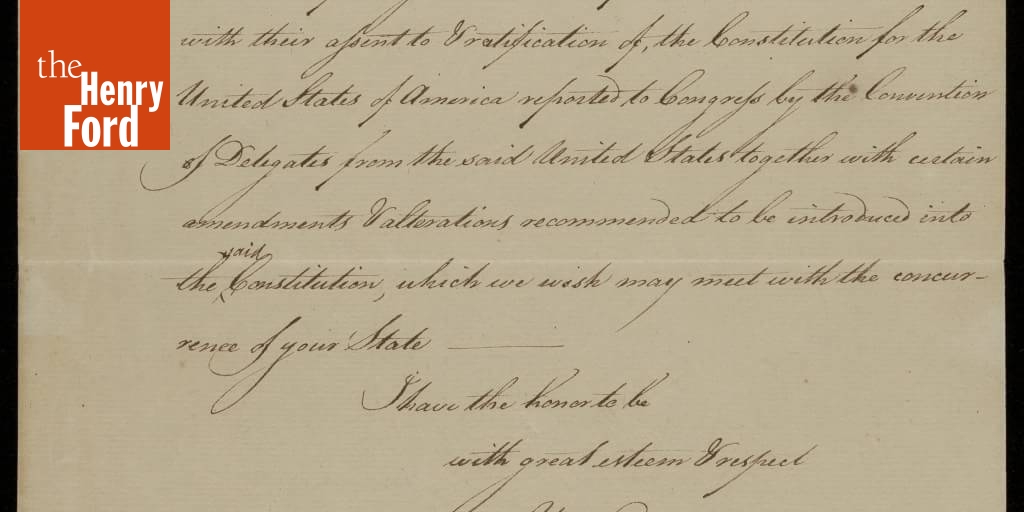 the
Henry
Ford
with their assent to & ratification of, the Constitution for the
United States of America reported to Congress by the Convention
of Delegates from the said United States together with certain
amendments & alterations recommended to be introduced into
said
the Constitution, which we wish may meet with the concur-
rence of your State
I have the honor to be
with great esteem & respect